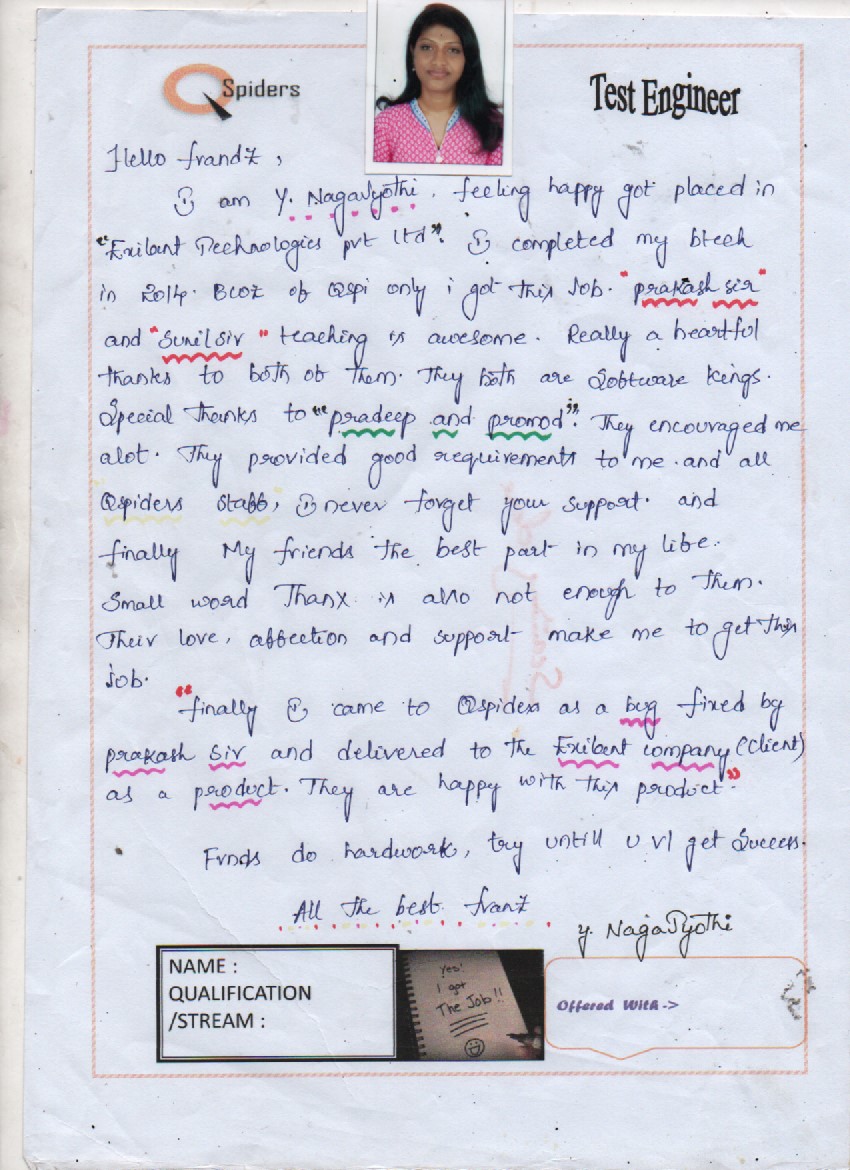 Q Spiders
Test Engineer
Hello frandz,
I am Y. NagaJyothi. feeling happy got placed in
"Exilant Technologies pvt ltd". I completed my btech
in 2014. BCOZ of Qspi only i got this Job. "prakash sir"
and "Sunil Sir" teaching is awesome. Really a heartful
thanks to both of them. They both are Software kings.
Special thanks to "pradeep and promod". They encouraged me
alot. They provided good requirements to me. and all
Qspiders staff, I never forget your support. and
finally My friends the best part in my life.
Small word Thanx is also not enough to them.
Their love, affection and support make me to get this
Job.
"finally I came to Qspiders as a bug fixed by
prakash Sir and delivered to the Exilant company (Client)
as a product. They are happy with this product"
Frnds do hardwork, try untill u vl get Success.
All the best franz
Y. NagaJyothi
NAME :
QUALIFICATION
/STREAM :
Yes!
I got
The Job!!
Offered With ->